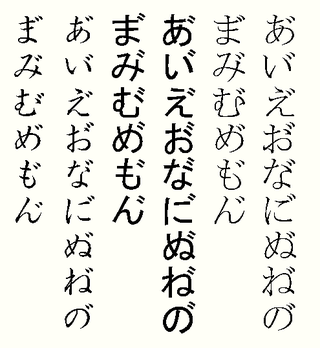 あ゙い゙え゙お゙な゙に゙ぬ゙ね゙の゙
ま゙み゙む゙め゙も゙ん゙
あ゙い゙え゙お゙な゙に゙ぬ゙ね゙の゙
ま゙み゙む゙め゙も゙ん゙
あ゙い゙え゙お゙な゙に゙ぬ゙ね゙の゙
ま゙み゙む゙め゙も゙ん゙